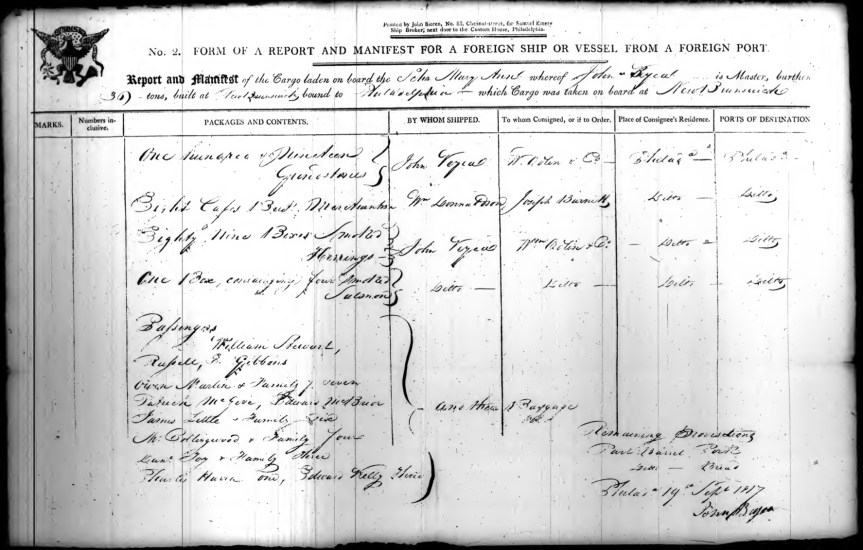 Printed by John Bioren, No. 83, Chesnut-street, for Samuel Emery
Ship Broker, next door to the Custom House, Philadelphia.
No. 2. FORM OF A REPORT AND MANIFEST FOR A FOREIGN SHIP OR VESSEL FROM A FOREIGN PORT.
Report and Manifest of the Cargo laden on board the Schr Mary Ann whereof John is Master, burthen
tons, built at New Brunswick bound to Philadelphia which Cargo was taken on board at New Brunswick
MARKS. Numbers inclusive. PACKAGES AND CONTENTS. BY WHOM SHIPPED. To whom Consigned, or if to Order. Place of Consignee's Residence. PORTS OF DESTINATION
One hundred & Nineteen
Grindstones John & Co Philada Philada
Eight Wm Donnaldson Joseph Burnett Ditto Ditto
Eighty Nine Boxes Smoked
Herrings John Wm & Co Ditto Ditto
One Box, containing four Smoked
Salmon Ditto Ditto Ditto Ditto
Passengers
William Stewart,
Russell, Gibbons
Owen Martin & Family 7 seven
Patrick McGee, Edward
James Little & Family Six
and their Baggage
Mr Collingwood & Family four
& Family three
Charles One, Edward Kelly three
Remaining Provisions
Part Barrel Pork
Ditto Bread
Philada 19th Sept 1817
John